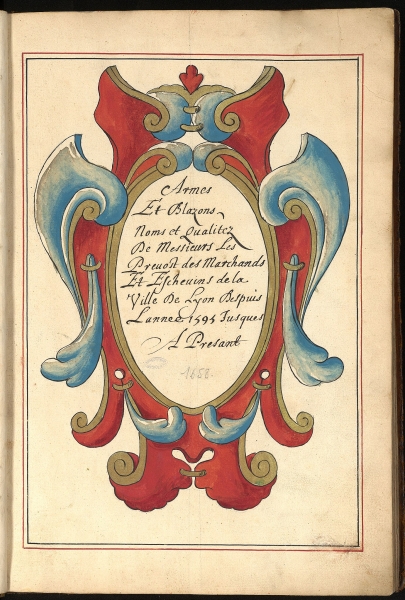 Armes
Et Blazons
Noms et Qualitez
De Messieurs Les
Prevost des Marchands
Et Eschevins de la
Ville De Lyon Despuis
L'annee 1595 Jusques
A Presant
1658.